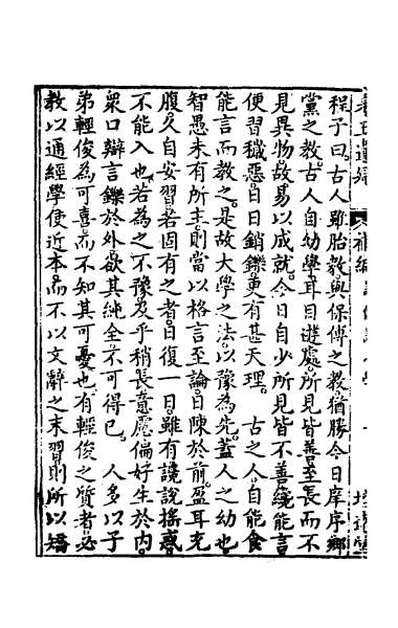 程子曰古人雖胎教與保傅之教猶勝今日庠序鄉
黨之教古人自幼學耳目遊處所見皆善至長而不
見異物故易以成就今日自少所見皆不善纔能言
便習穢惡日日銷鑠更有甚天理　古之人自能食
能言而教之是故大學之法以豫為先蓋人之幼也
智愚未有所主則當以格言至論日陳於前盈耳充
腹久自安習若固有之者日復一日雖有讒說搖惑
不能入也若為之不豫及乎稍長意慮偏好生於內
衆口辯言鑠於外欲其純全不可得已　人多以子
弟輕俊為可喜而不知其可憂也有輕俊之質者必
教以通經學使近本而不以文辭之末習則所以矯